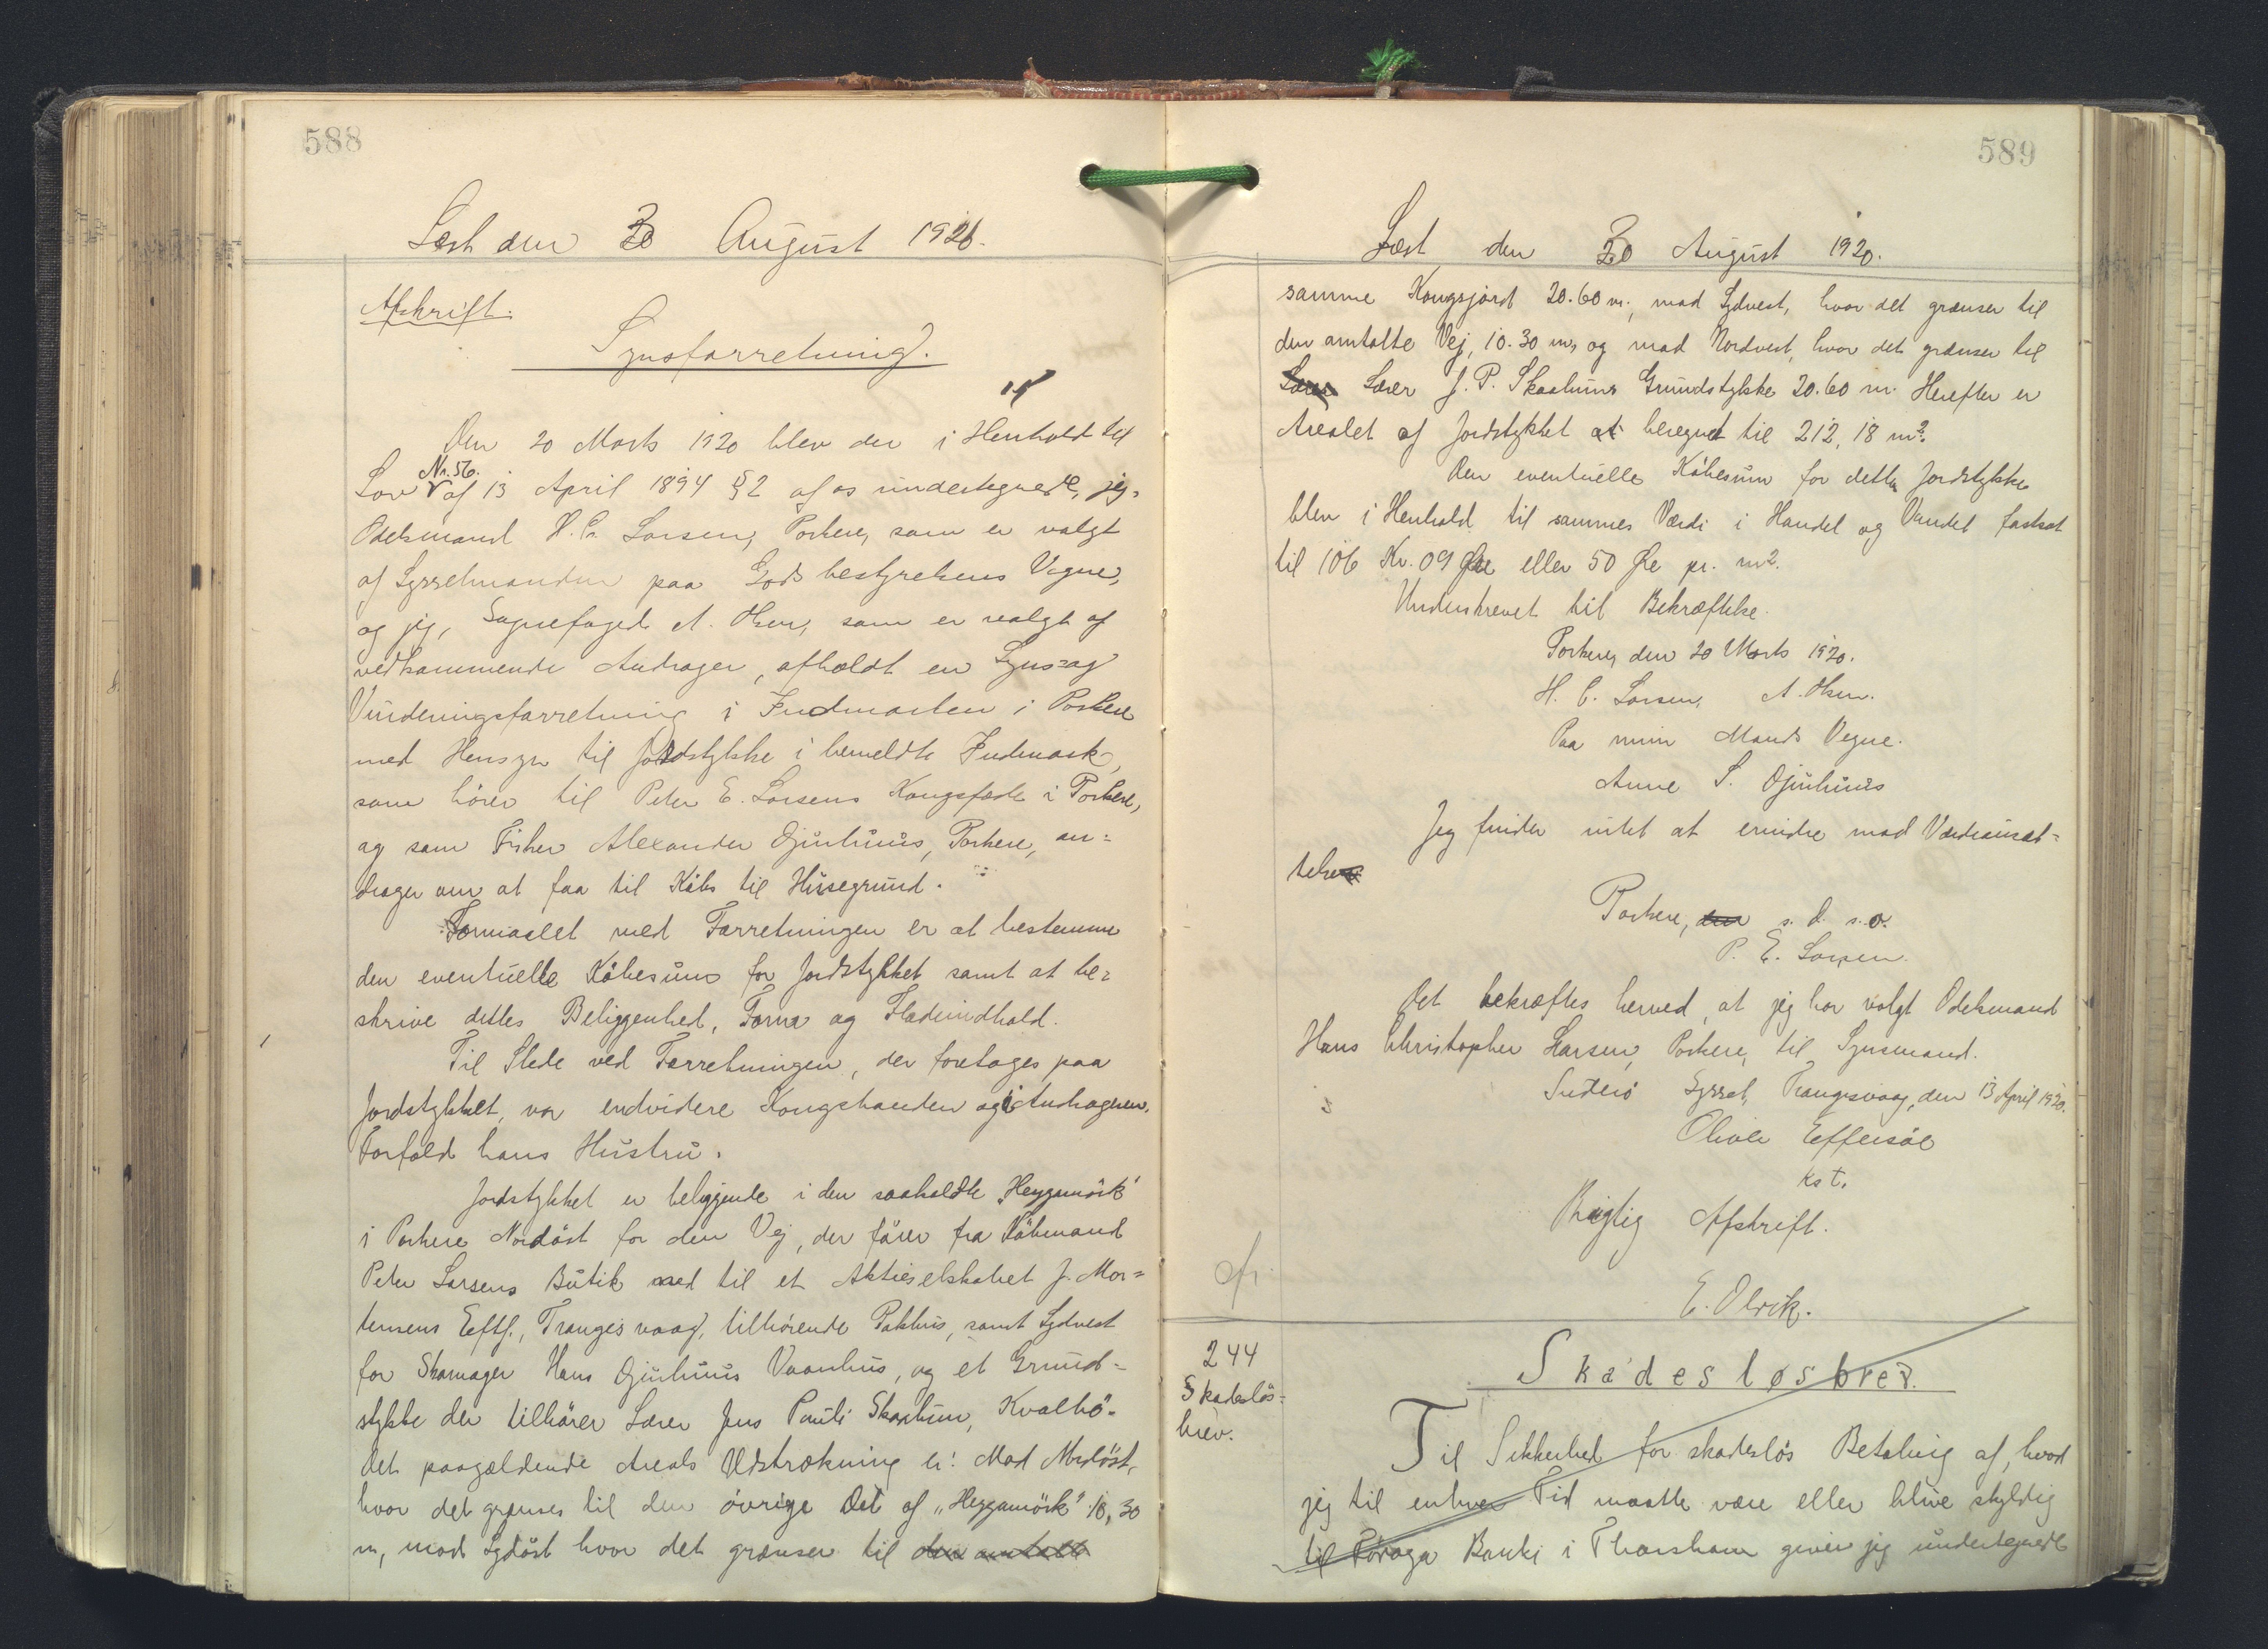 588
Læst den 30 August 1920.
Afskrift.
Synsforretning.
Den 20 Marts 1920 blev der i Henhold til
Lov Nr. 56. af 13 April 1894 § 2 af os undertegnede, jeg,
Odelsmand H. C. Larsen, Porkere, som er valgt
af Sysselmanden paa Godsbestyrelsens Vegne,
og jeg, Sognefoged A. Olsen, som er valgt af
vedkommende Andrager, afholdt en Syns- og
Vurderingsforretning i Indmarken i Porkere
med Hensyn til Jordstykke i bemeldte Indmark,
som hører til Peter E. Larsens Kongsfæste i Porkere,
og som Fisker Alexander Djurhuus, Porkere, an=
drager om at faa til Købs til Husegrund.
Formaalet med Forretningen er at bestemme
den eventuelle Købesum for Jordstykket samt at be=
skrive dettes Beliggenhed, Form og Fladeindhold.
Til Stede ved Forretningen, der foretages paa
Jordstykket, var endvidere Kongsbonden og i Andragerens
Forfald hans Hustru.
Jordstykket er beliggende i den saakaldte „Heygamørk"
i Porkere Nordøst for den Vej, der fører fra Købmand
Peter Larsens Butik ned til et Aktieselskabet J. Mor=
tensens Eeftf., Trangisvaag, tilhørende Pakhus, samt Sydvest
for Skomager Hans Djurhuus Vaanhus, og et Grund=
stykke der tilhører Lærer Jens Pauli Skaalum, Kvalbø.
Det paagældende Areals Udstrækning er: Mod Nordøst,
hvor det grænser til den øvrige Del af „Heygamørk" 10,30
m, mod Sydøst hvor det grænser til den omtalte
589
Læst den 30 August 1920.
samme Kongsjord 20.60 m., mod Sydvest, hvor det grænser til
den omtalte Vej, 10.30 m, og mod Nordvest, hvor det grænser til
Lærer Lærer J. P. Skaalums Grundstykke 20.60 m. Herefter er
Arealet af Jordstykket at beregnet til 212,18 m².
Den eventuelle Købesum for dette Jordstykke
blev i Henhold til sammes Værdi i Handel og Vandel fastsat
til 106 Kr. 09 Øre eller 50 Øre pr. m².
Underskrevet til Bekræftelse.
Porkere, den 20 Marts 1920.
H. C. Larsen, A. Olsen.
Paa min Mands Vegne.
Anne S. Djurhuus
Jeg finder intet at erindre mod Værdiansæt=
telsen
Porkere, den s. d. s. o.
P. E. Larsen.
Det bekræftes herved, at jeg har valgt Odelsmand
Hans Christopher Larsen, Porkere, til Synsmand.
Suderø Syssel, Trangisvaag, den 13 April 1920.
Oliver Effersøe
kst.
Rigtig Afskrift.
E. Olrik.
cfr.
244
Skadesløs=
brev.
Skadesløsbrev.
Til Sikkerhed for skadesløs Betaling af, hvad
jeg til enhver Tid maatte være eller blive skyldig
til Føroya Banki i Thorshavn giver jeg undertegnede